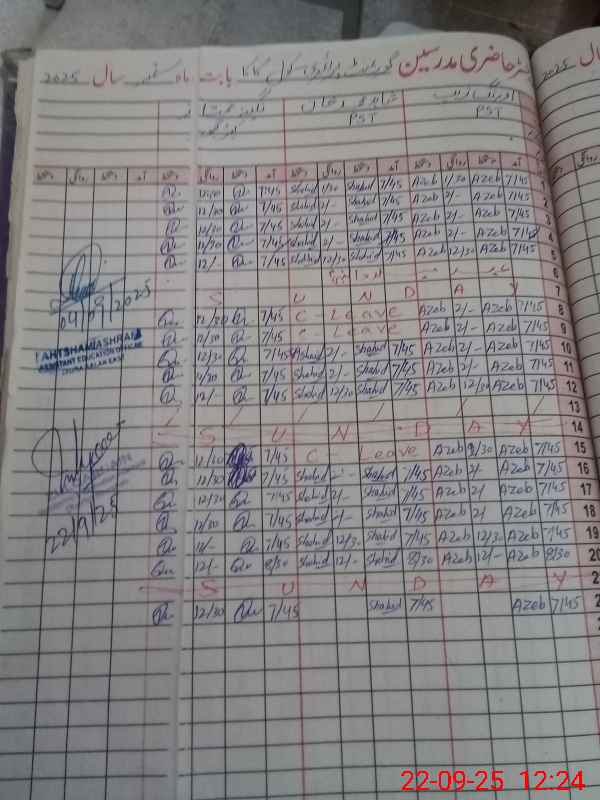 ٹر حاضری مدرسین گورنمنٹ پرائمری سکول بابت ماہ ستمبر سال 2025
2025 سال
اورنگ زیب
PST
شاہد
PST
دستخط روانگی دستخط آمد دستخط روانگی دستخط آمد دستخط روانگی دستخط آمد
1 7/45 Azeb 1/30 Azeb 7/45 Shahid 1/30 Shahid 7/45
2 7/45 Azeb 2/- Azeb 7/45 Shahid 2/- Shahid 7/45 12/30
3 7/45 Azeb 2/- Azeb 7/45 Shahid 2/- Shahid 7/45 12/30
4 7/45 Azeb 2/- Azeb 7/45 Shahid 2/- Shahid 7/45 12/30
5 7/45 Azeb 12/30 Azeb 7/45 Shahid 12/30 Shahid 7/45 12/-
6
7 S U N D A Y
8 7/45 Azeb 2/- Azeb C - Leave 7/45 12/30
9 7/45 Azeb 2/- Azeb C - Leave 7/45 12/30
10 7/45 Azeb 2/- Azeb 7/45 Shahid 2/- Shahid 7/45 12/30
11 7/45 Azeb 2/- Azeb 7/45 Shahid 2/- Shahid 7/45 12/30
12 7/45 Azeb 12/30 Azeb 7/45 Shahid 12/30 Shahid 7/45 12/-
13
14 S U N D A Y
15 7/45 Azeb Azeb C - Leave 7/45
16 7/45 Azeb 2/- Azeb 7/45 Shahid Shahid 7/45 12/30
17 7/45 Azeb 2/- Azeb 7/45 Shahid 2/- Shahid 7/45 12/30
18 7/45 Azeb 2/- Azeb 7/45 Shahid 2/- Shahid 7/45 12/30
19 7/45 Azeb 12/30 Azeb 7/45 Shahid 12/30 Shahid 7/45 12/-
20 8/30 Azeb 12/- Azeb 8/30 Shahid 12/- Shahid 8/30 12/-
2 S U N D A Y
2 7/45 Azeb 7/45 Shahid 7/45 12/30
04/09/2025
AHTSHAM ASHRAF
ASSISTANT EDUCATION OFFICER
22/9/25
22-09-25 12:24